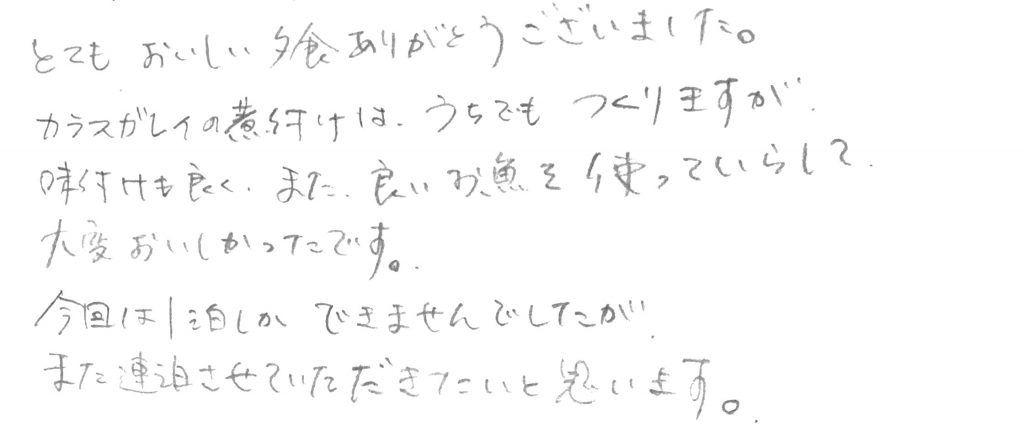 とてもおいしい夕食ありがとうございました。
カラスガレイの煮付けは、うちでもつくりますが、
味付けも良く、また、良いお魚を使っていらして、
大変おいしかったです。
今回は1泊しかできませんでしたが、
また連泊させていただきたいと思います。